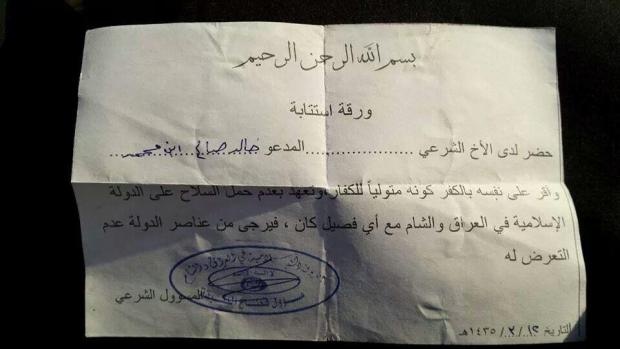 بسم الله الرحمن الرحيم
ورقة استتابة
حضر لدى الأخ الشرعي ....................المدعو خالد صالح ابن محمد
واقر على نفسه بالكفر كونه متولياً للكفار وتعهد بعدم حمل السلاح على الدولة
الإسلامية في العراق والشام مع أي فصيل كان ، فيرجى من عناصر الدولة عدم
التعرض له
المسؤول الشرعي
التاريخ ١٢/ ٢/ ١٤٣٥هـ